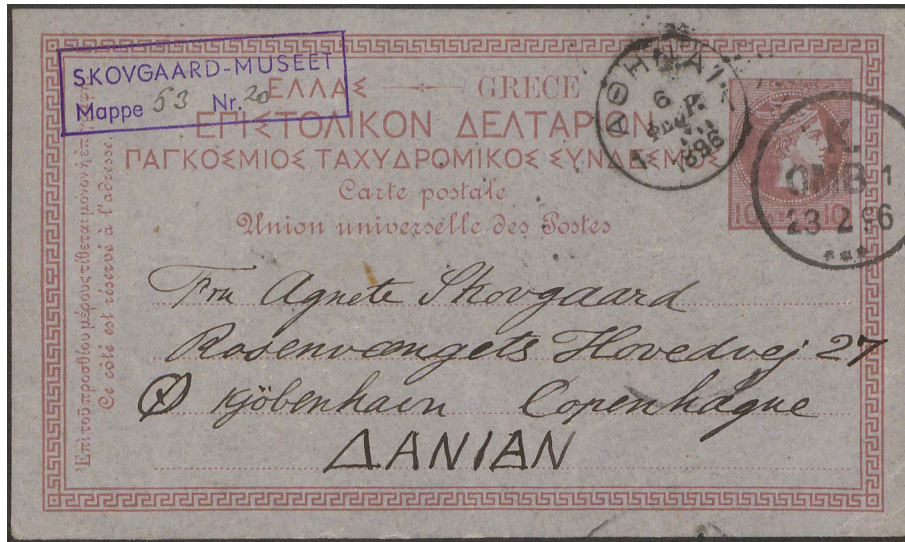 SKOVGAARD-MUSEET
Mappe 53 Nr. 20
ΕΛΛΑΣ — GRECE
ΕΠΙΣΤΟΛΙΚΟΝ ΔΕΛΤΑΡΙΟΝ
ΠΑΓΚΟΣΜΙΟΣ ΤΑΧΥΔΡΟΜΙΚΟΣ ΣΥΝΔΕΣΜΟΣ
Carte postale
Union universelle des Postes
ΑΘΗΝΑΙ
6
ΦΕΒΡ.
1896
1
10 10
K.
OMB 1
23 2 96
***
Ἐπὶ τοῦ προσθίου μέρους τίθεται μόνον ἡ
Ce côté est réservé à l'adresse
Fru Agnete Skovgaard
Rosenvængets Hovedvej 27
Ø Kjöbenhavn Copenhague
ΔΑΝΙΑΝ